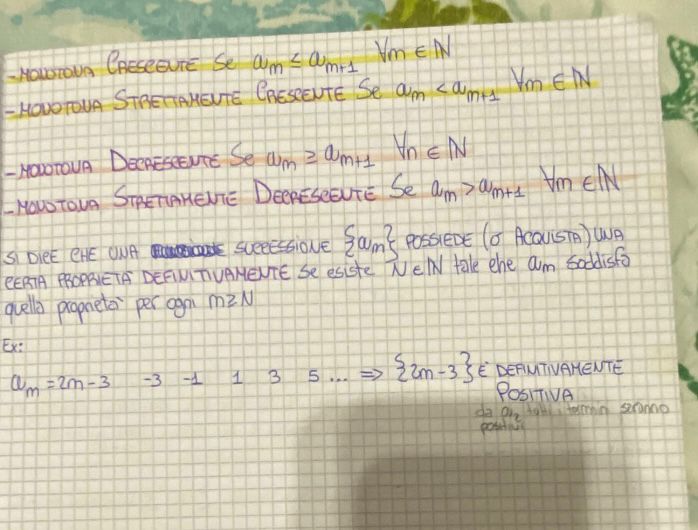 - MONOTONA CRESCENTE Se an ≤ an+1 ∀n ∈ ℕ
- MONOTONA STRETTAMENTE CRESCENTE Se an < an+1 ∀n ∈ ℕ
- MONOTONA DECRESCENTE Se an ≥ an+1 ∀n ∈ ℕ
- MONOTONA STRETTAMENTE DECRESCENTE Se an > an+1 ∀n ∈ ℕ
SI DICE CHE UNA SUCCESSIONE {an} POSSIEDE (o ACQUISTA) UNA
CERTA PROPRIETÀ DEFINITIVAMENTE se esiste N ∈ ℕ tale che an soddisfa
quella proprietà per ogni n ≥ N
Ex:
an = 2n - 3 -3 -1 1 3 5 ... ⇒ {2n - 3} È DEFINITIVAMENTE
POSITIVA
da a2 tutti i termini saranno
positivi